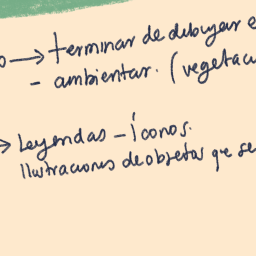 → terminar de dibujar e
- ambientar. (vegetac
→ Leyendas - Íconos.
Ilustraciones de objetos que se